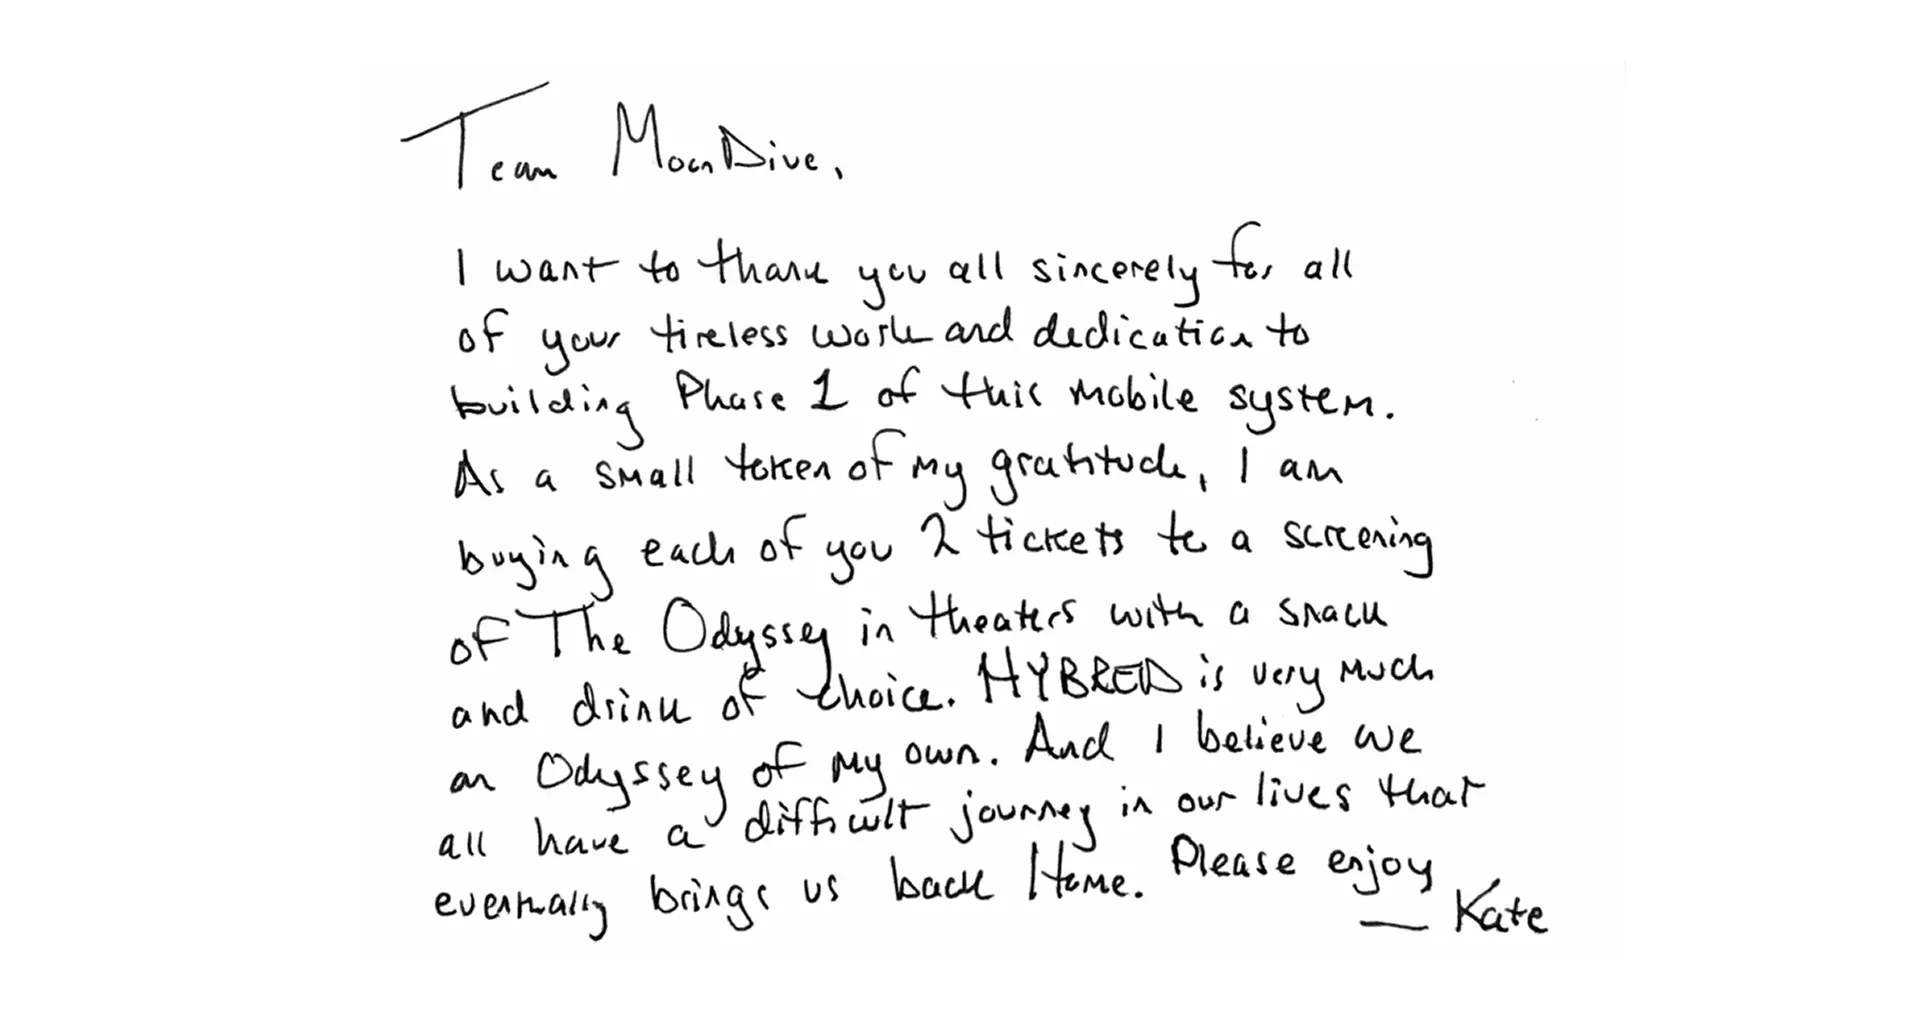 Team MoonDive,
I want to thank you all sincerely for all
of your tireless work and dedication to
building Phase 1 of this mobile system.
As a small token of my gratitude, I am
buying each of you 2 tickets to a screening
of The Odyssey in theaters with a snack
and drink of choice. HYBRED is very much
an Odyssey of my own. And I believe we
all have a difficult journey in our lives that
eventually brings us back Home. Please enjoy
— Kate